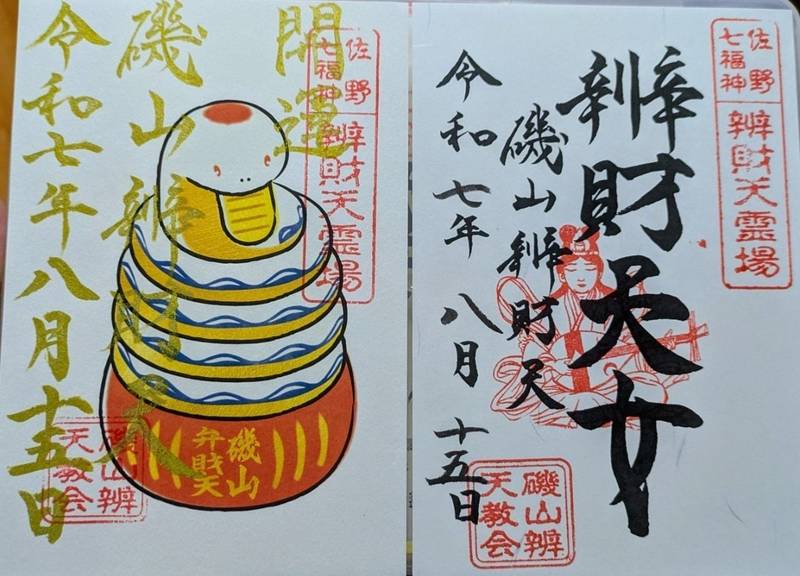 佐野
七福神
辨財天霊場
辨財天女
磯山辨財天
令和七年 八月 十五日
磯山辨
天教会
佐野
七福神
辨財天霊場
開運
磯山辨財天
令和七年八月十五日
磯山
弁財天
磯山辨
天教会